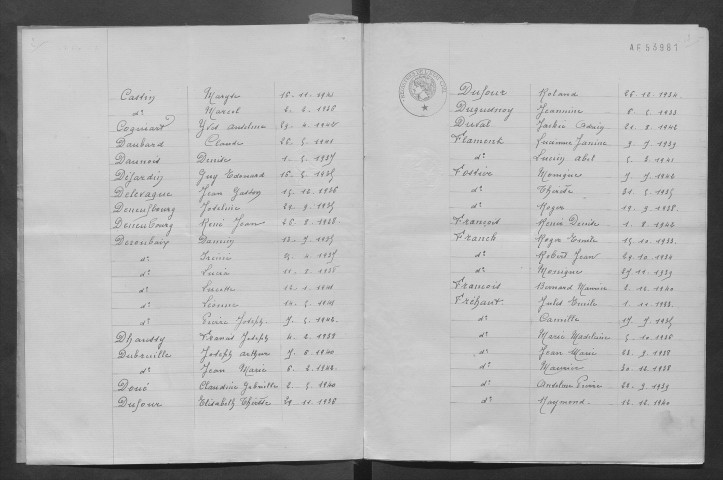 Castin Margte 15. 11. 1940
d° Marcel 2. 2. 1938
Cogniart Yves Anselme 23. 4. 1942
Daubard Claude 26. 5. 1941
Daunois Denise 1. 5. 1937
Déjardin Guy Edouard 16. 5. 1935
Delevaque Jean Gaston 15. 12. 1936
Deneufbourg Josseline 28. 9. 1935
Deneufbourg René Jean 26. 8. 1938
Deroubaix Damien 13. 7. 1935
d° Irénée 4. 1937
d° Lucie 11. 8. 1938
d° Lucette 16. 1. 1941
d° Léonne 14. 5. 1941
d° Pierre Joseph 7. 5. 1942
Dhaussy Francis Joseph 4. 2. 1939
Dubruille Joseph Arthur 7. 8. 1940
d° Jean Marie 8. 2. 1942
Doué Claudine Gabrielle 2. 5. 1940
Dufour Elisabeth Thérèse 21. 11. 1938
AF53981
Dufour Roland 26. 12. 1934
Duquesnoy Jeannine 8. 5. 1933
Duval Jackie 21. 8. 1942
Flament Lucienne Janine 9. 7. 1939
d° Lucien Abel 5. 2. 1941
Fostève Monique 7. 7. 1942
d° Thérèse 21. 5. 1935
d° Roger 19. 9. 1938
François Denise 1. 8. 1942
Franck Roger Emile 15. 10. 1933
d° Robert Jean 29. 10. 1934
d° Monique 27. 11. 1939
François Bernard Maurice 2. 12. 1940
Fréhaut Jules Emile 1. 11. 1933
d° Camille 17. 7. 1935
d° Marie Madeleine 5. 10. 1936
d° Jean Marie 22. 9. 1938
d° Maurice 30. 12. 1938
d° Anselme Pierre 28. 9. 1939
d° Raymond 16. 12. 1940